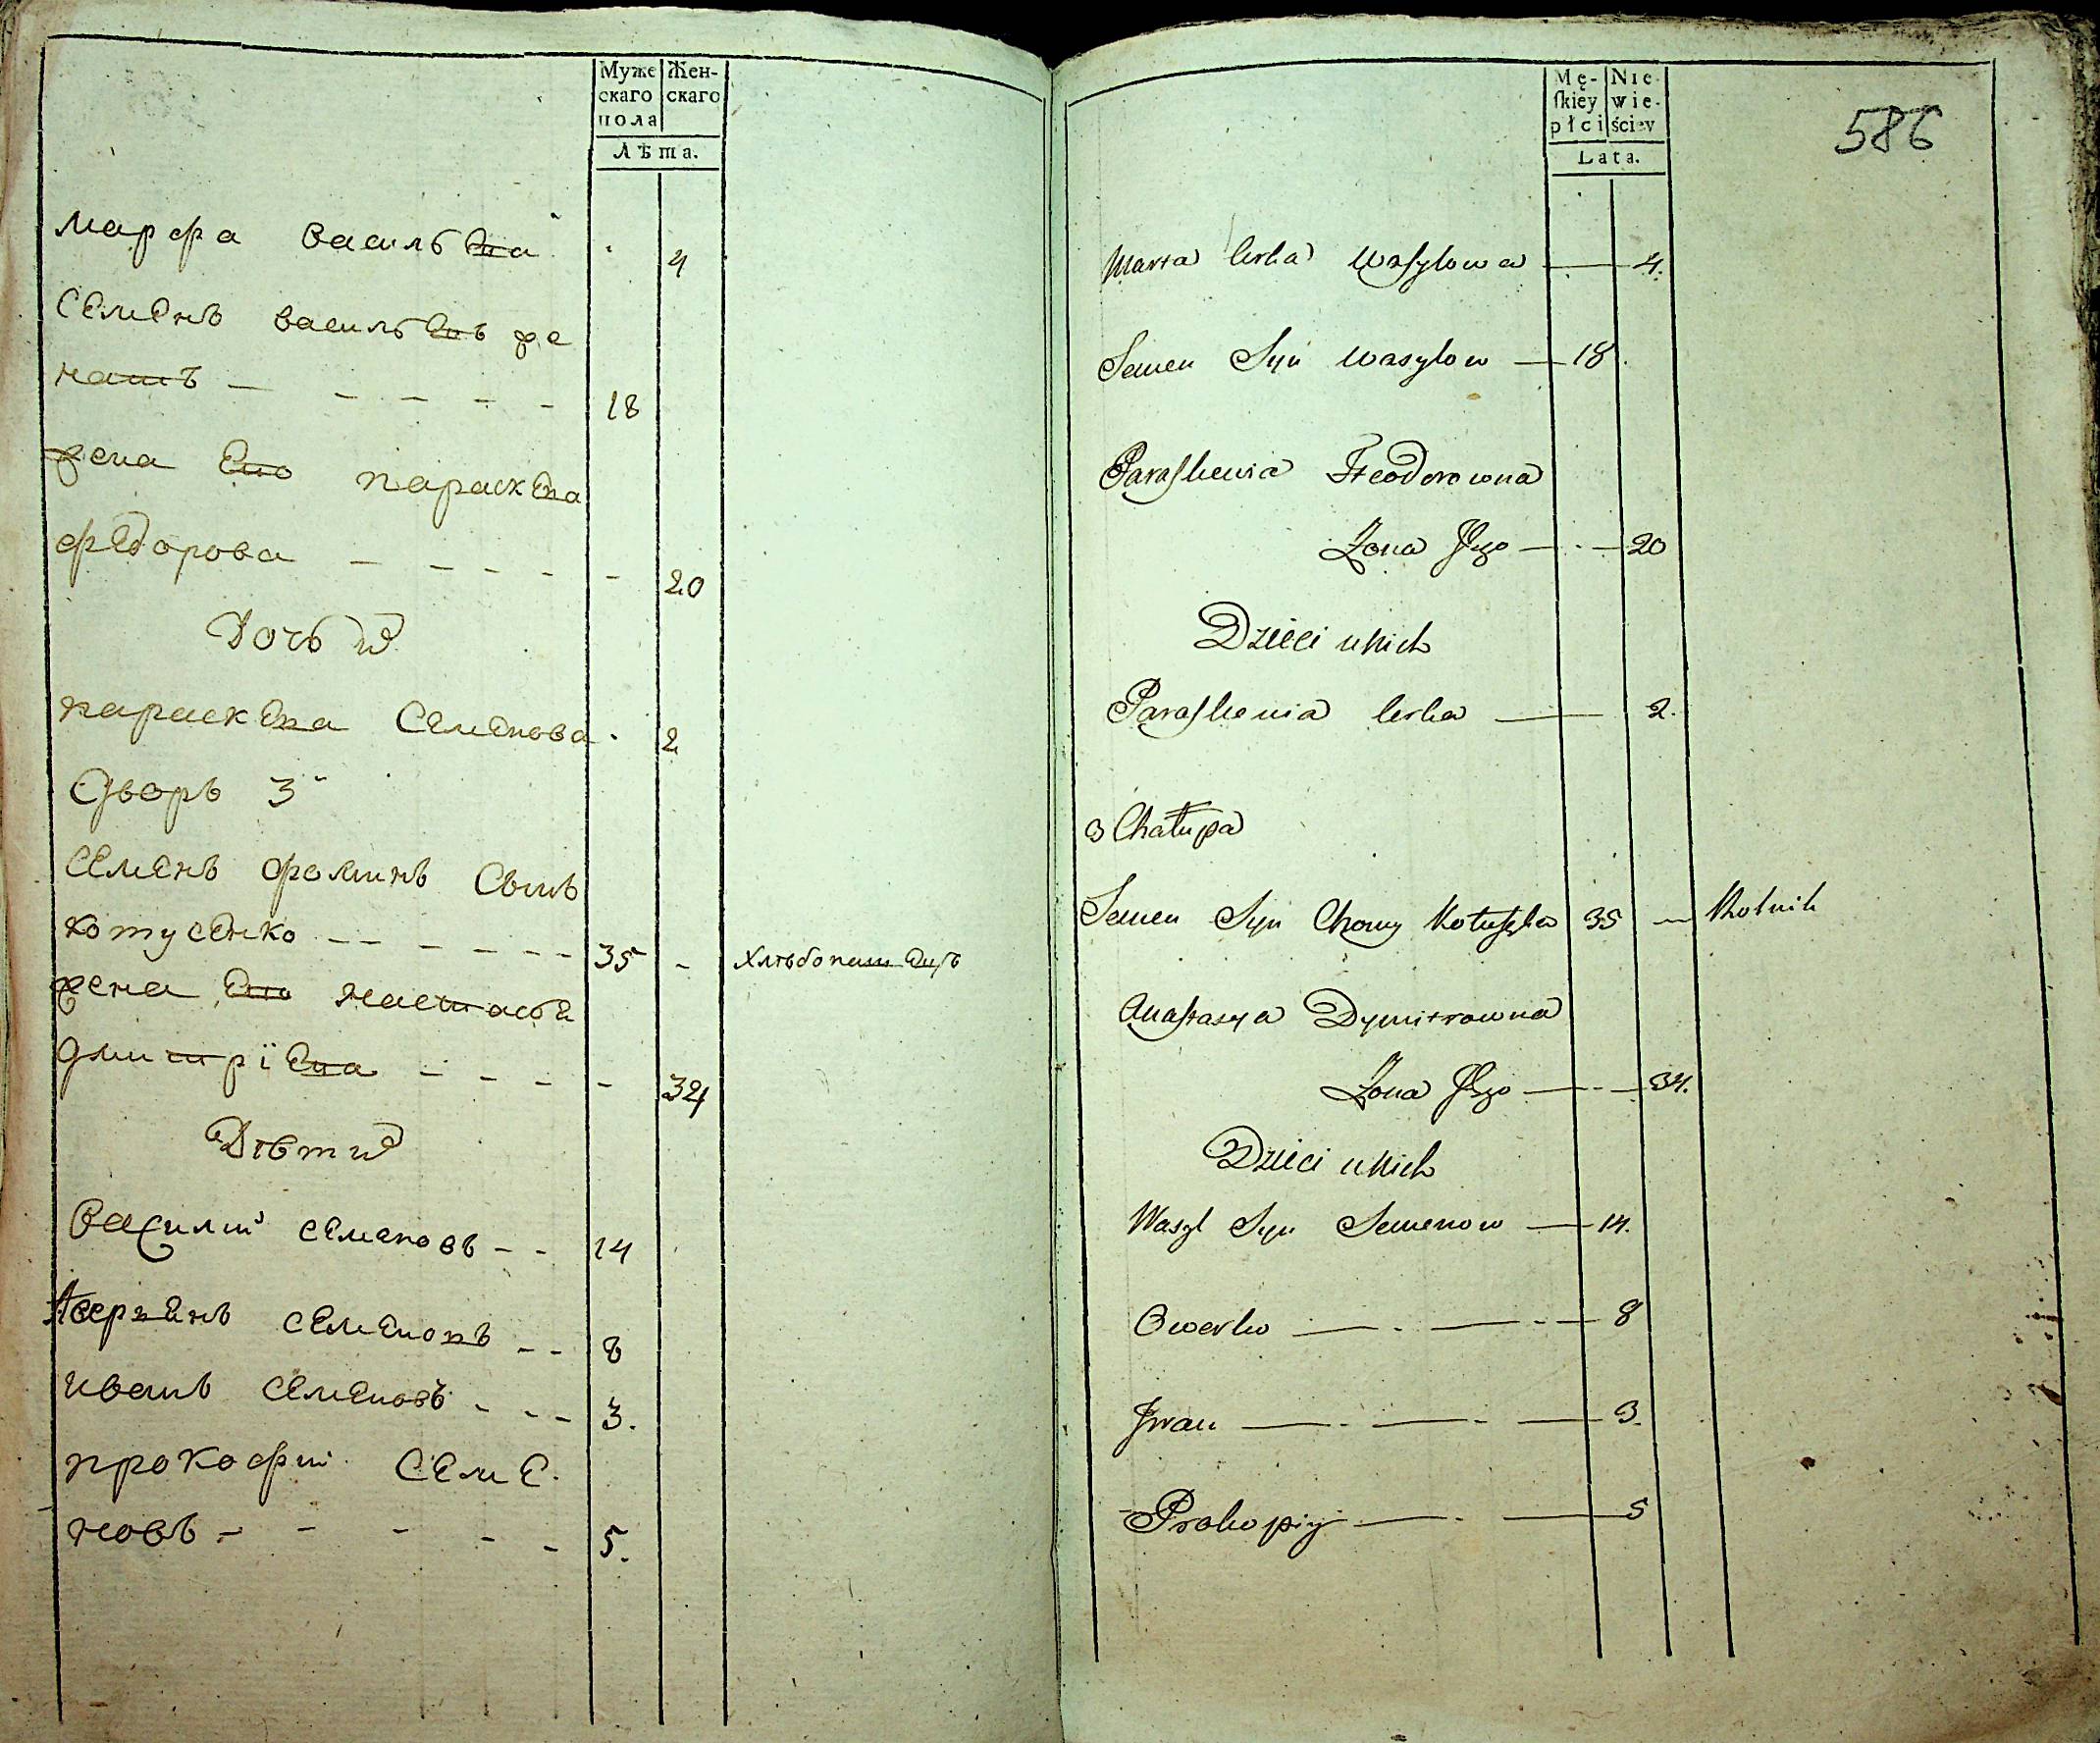 Муже
скаго
пола
Жен-
скаго
Лѣта.
марфа васильева 4
Семенъ васильевъ же
натъ — — — — — 18
жена Ево параскева
федорова — — — — — 20
Дочь
параскева Семенова 2
Дворъ 3
Семенъ фоминъ Сынъ
котусенко — — — — — — 35 - хлѣбопашецъ
жена Ево настасья
дмитрїева — — — — 34
Дѣти
Василий семеновъ — — 14
Аверкѣнъ семеновъ — — 8
иванъ семеновъ - - - 3.
прокофий Семе
новъ — — — — — 5.
Mę-
skiey
płci
Nie-
wie-
ściey
Lata.
586
Marta Corka Wasylowa — 4.
Semen Syn Wasylow — 18.
Paraskewia Fteodorowna
Zona Jego — 20
Dzieci u Nich
Paraskewia Corka — 2.
3 Chałupa
Semen Syn Chomy 35 — Rolnik
Anastasya Dymitrowna
Zona Jego — 34.
Dzieci u Nich
Wasyl Syn Semenow — 14.
Owerko — 8
Iwan — 3.
Prokopiy — 5